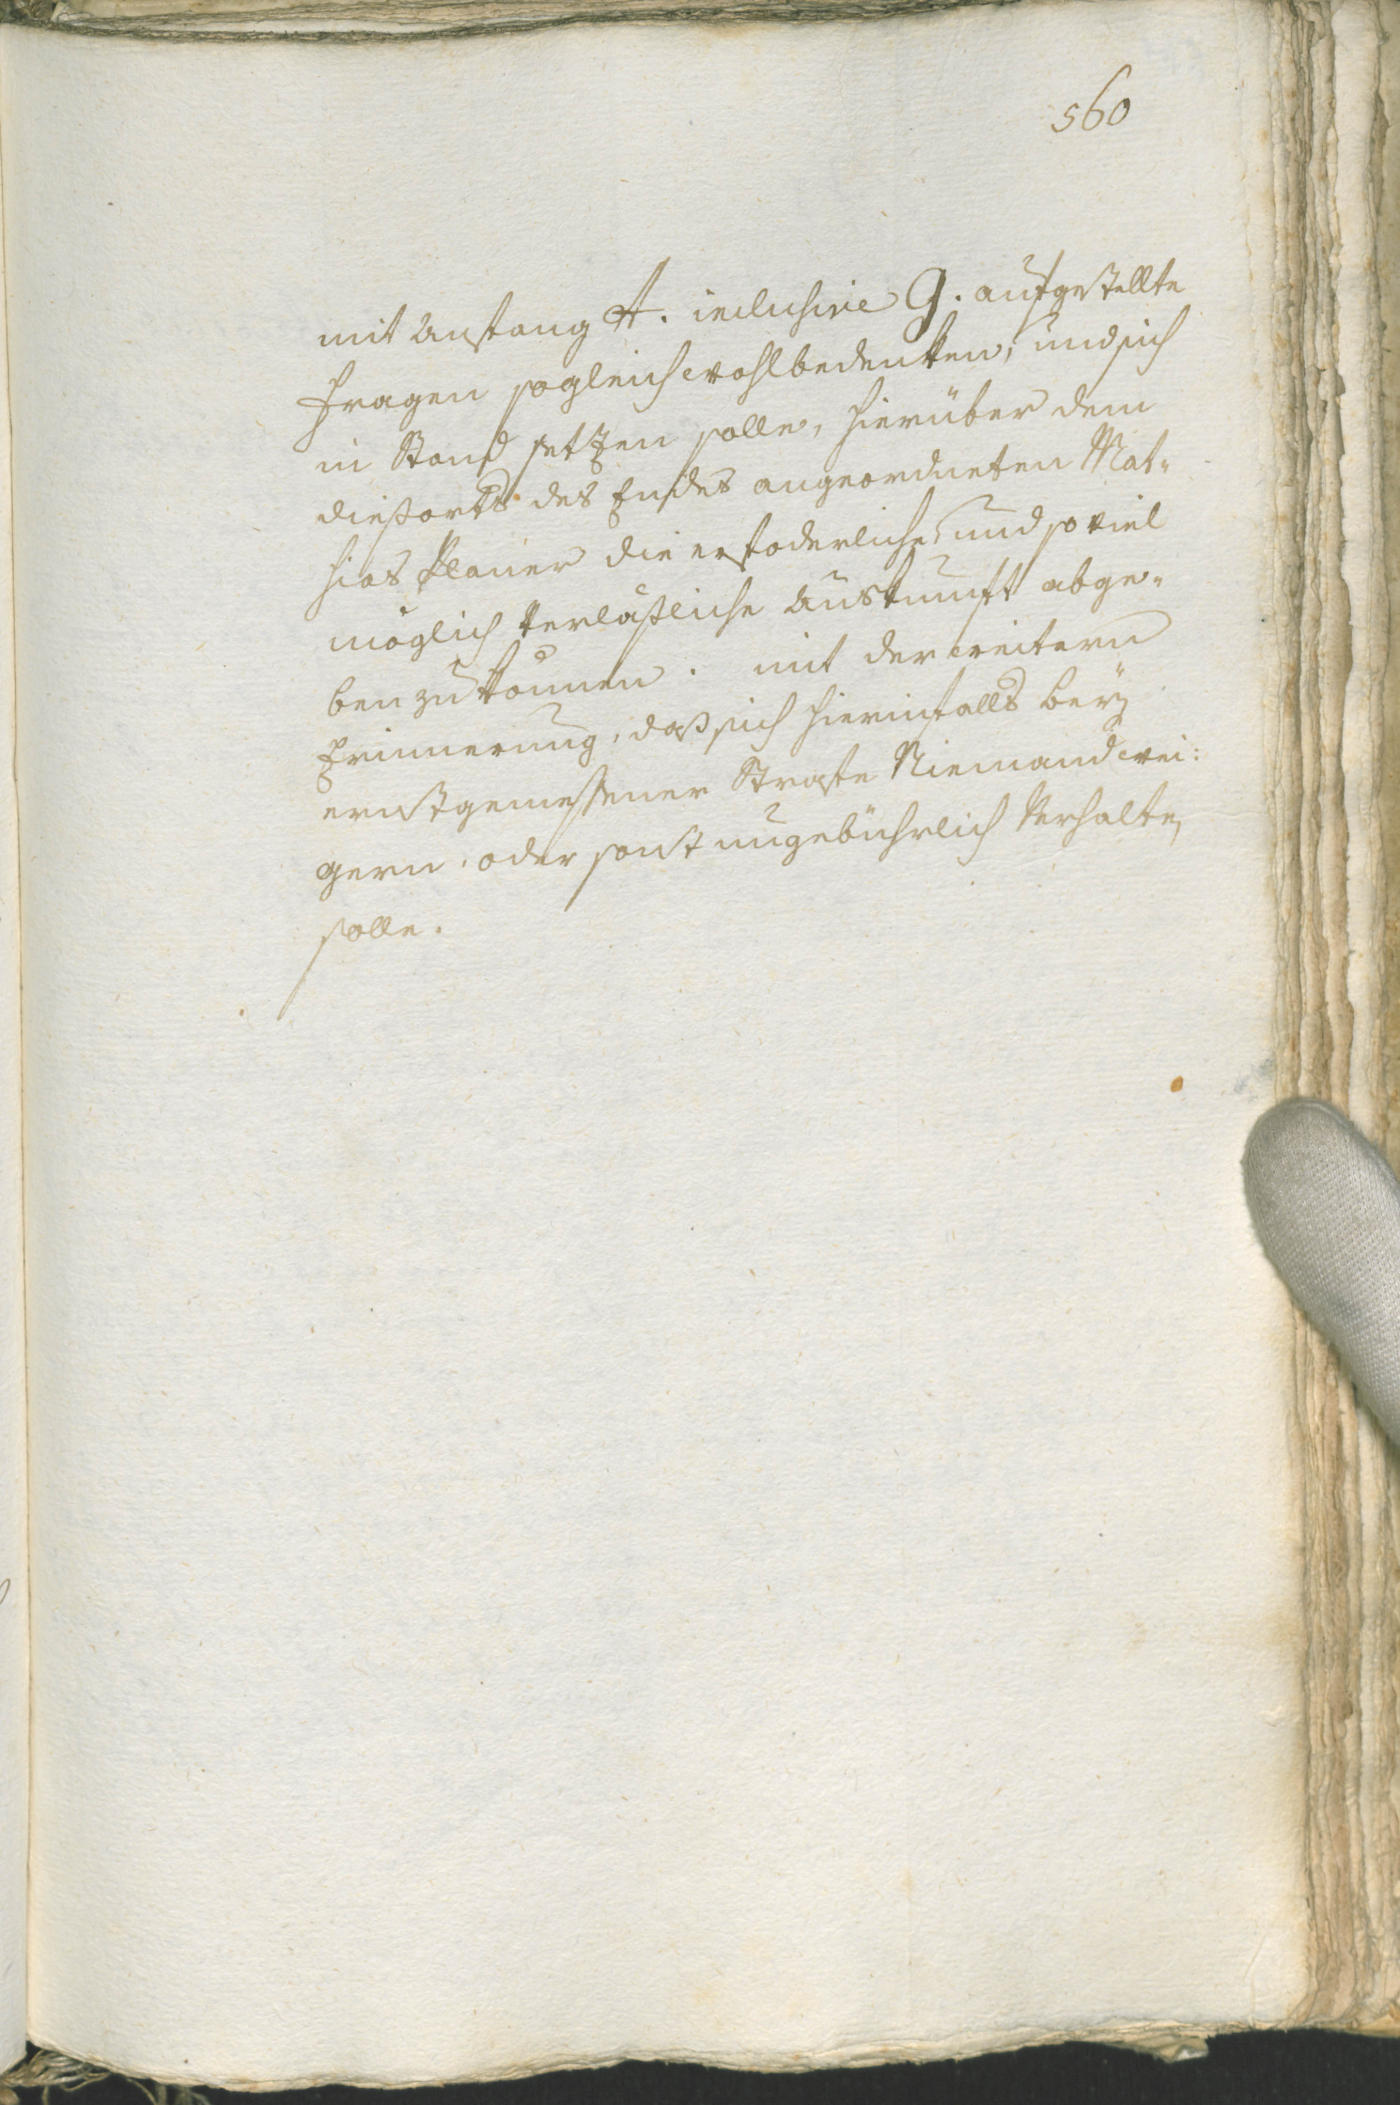 560
mit Anfang A. inclusive G. aufgestellte
Fragen sogleich wohlbedenken, und sich
in Stand setzen solle, hierüber dem
dießorts des Endes angeordneten Mat-
hias Planer die erfoderliche und so viel
möglich verläßliche Auskunft abge-
ben zu können. mit der weitern
Erinnerung, daß sich hierinfalls bey
ernstgemessener Strafe Niemand wei:
gern, oder sonst ungebührlich Verhalten
solle.